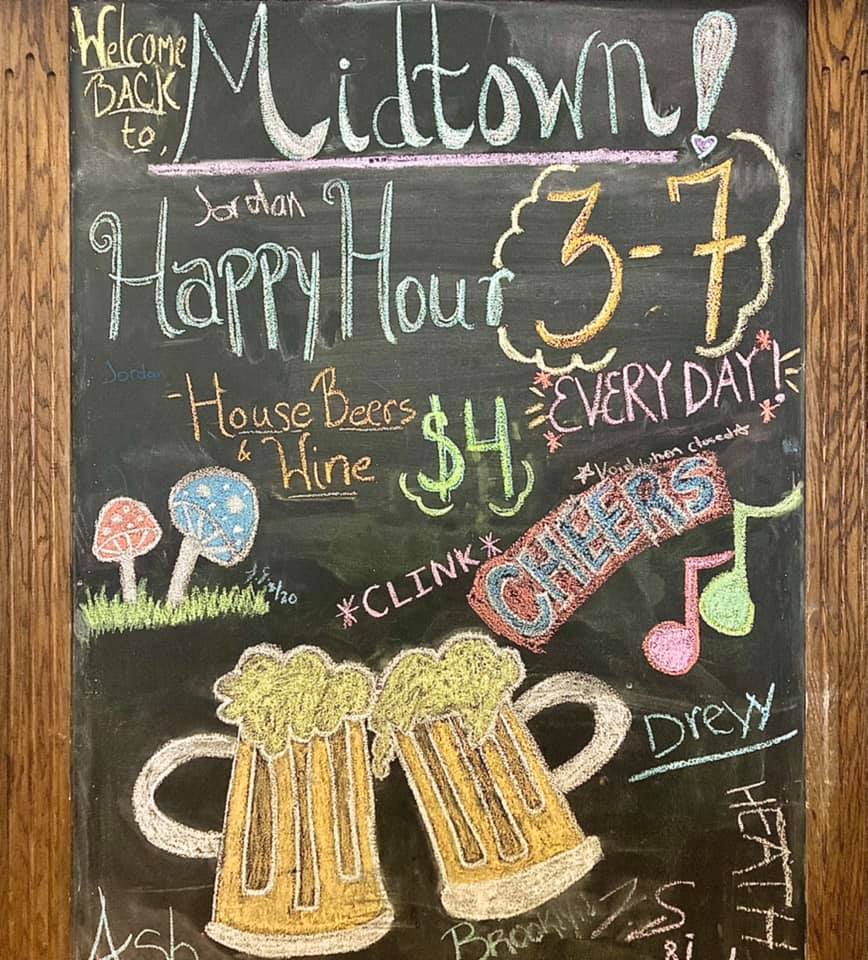 Welcome
BACK
to,
Midtown!
Jordan
Happy Hour 3-7
Jordan
EVERY DAY!
-House Beers
& Wine
$4
*Void when closed*
CHEERS
*CLINK*
Dreyy
HEATH
Brooklyn
Ash